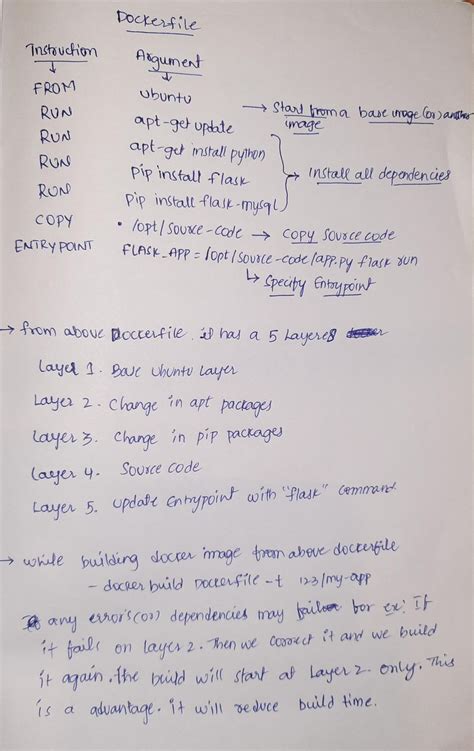 Dockerfile
Instruction Argument
FROM ubuntu → Start from a base image (or) another image
RUN apt-get update
RUN apt-get install python
RUN pip install flask → Install all dependencies
RUN pip install flask-mysql
COPY . /opt/source-code → COPY source code
ENTRYPOINT FLASK_APP = /opt/source-code/app.py flask run
↳ Specify Entrypoint
→ from above Dockerfile. it has a 5 Layers
Layer 1. Base Ubuntu Layer
Layer 2. Change in apt packages
Layer 3. Change in pip packages
Layer 4. Source code
Layer 5. Update Entrypoint with "flask" command
→ while building docker image from above dockerfile
- docker build Dockerfile -t 123/my-app
any errors(or) dependencies may for ex: If
it fails on layer 2. Then we correct it and we build
it again. the build will start at Layer 2 only. This
is a advantage. it will reduce build time.